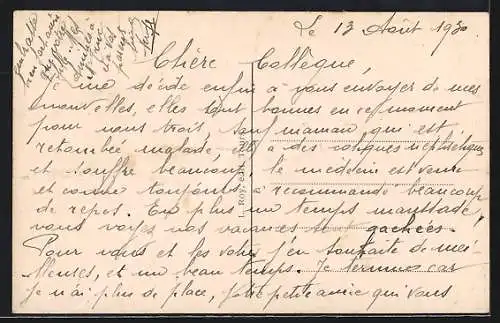 Le 13 Août 1930
Chère Collègue,
Je me décide enfin a vous envoyer de mes
nouvelles, elles sont bonnes en ce moment
pour nous trois, sauf maman, qui est
retombée malade, elle a des coliques néphrétiques
et souffre beaucoup, le médecin est venu
et comme toujours, a recommandé beaucoup
de repos. En plus un temps maussade,
vous voyez nos vacances sont gachées.
Pour vous et les votres j'en souhaite de mei-
lleures, et un beau temps. Je termine car
je n'ai plus de place, Votre petite amie qui vous